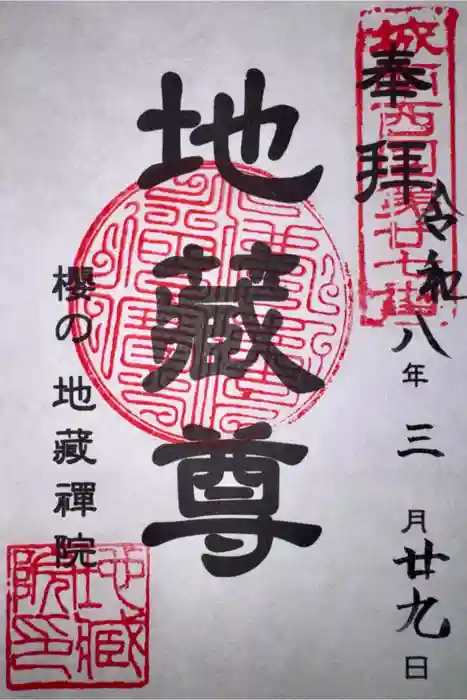 奉拝
令和八年三月廿九日
地藏尊
櫻の地藏禪院
地藏院印